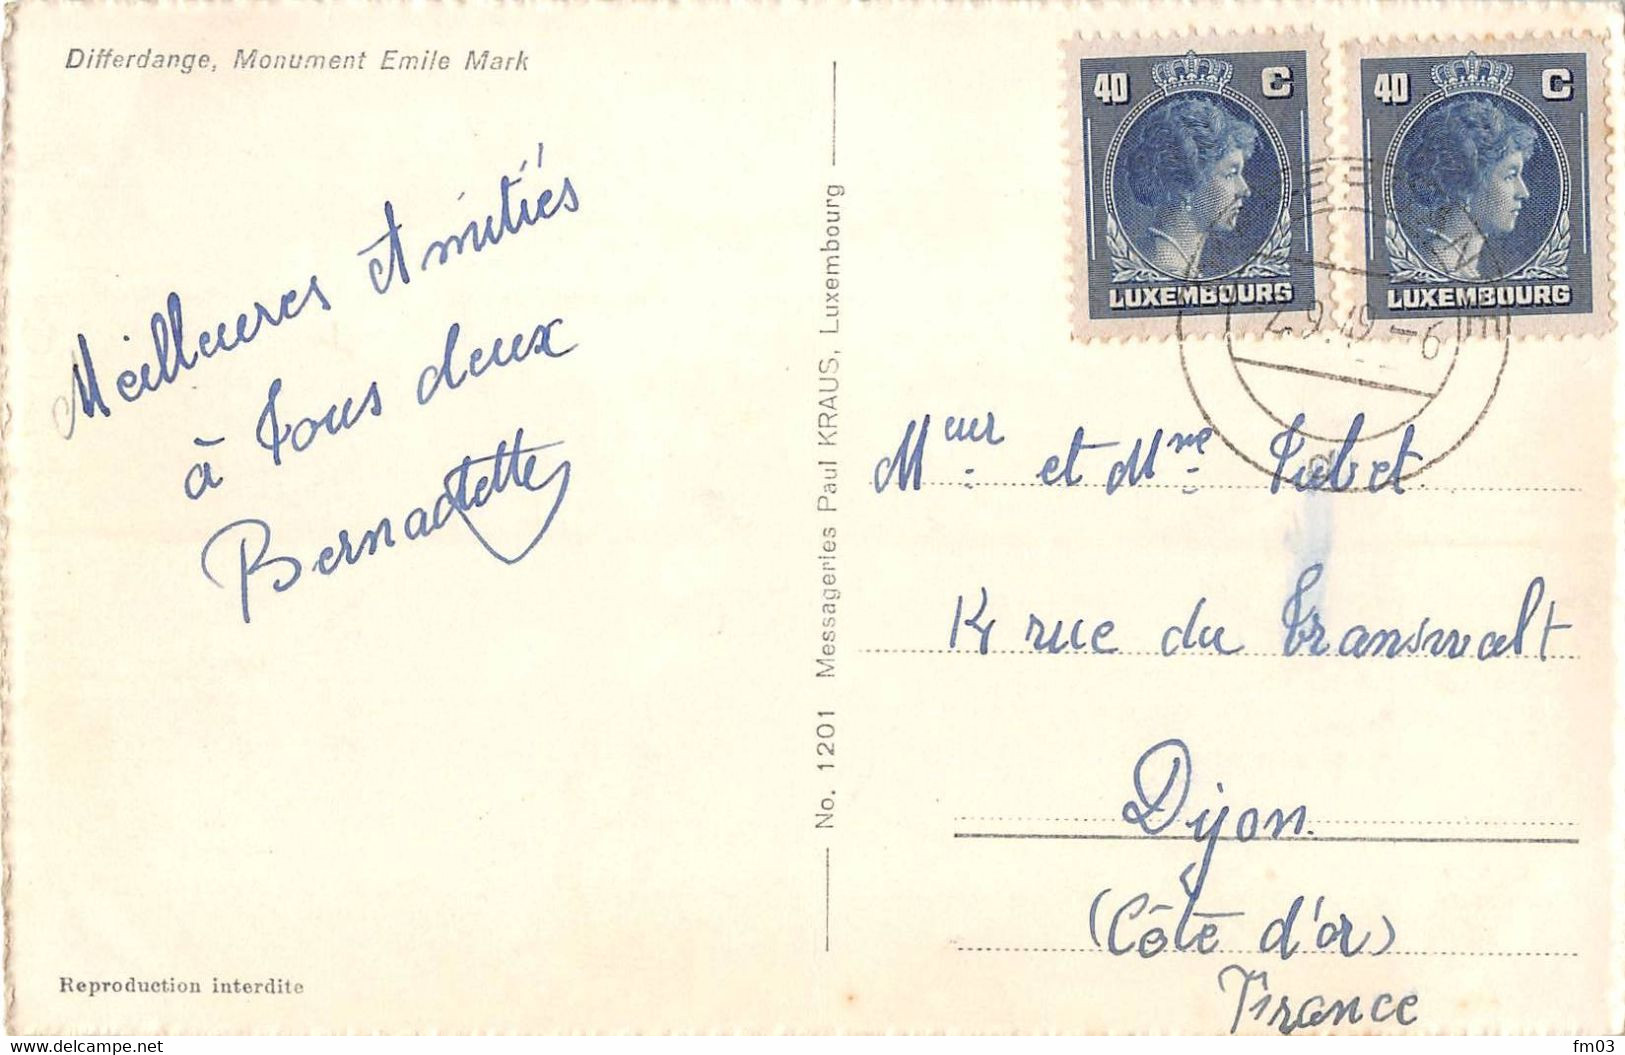 Differdange, Monument Emile Mark
Meilleures Amitiés
à tous deux
Bernadette
Reproduction interdite
No. 1201 Messageries Paul KRAUS, Luxembourg
40 C
LUXEMBOURG
40 C
LUXEMBOURG
2.9.49-6
d
Meur et Mme Tubet
14 rue du Transwalt
Dijon
(Côte d'or)
France
www.delcampe.net
fm03